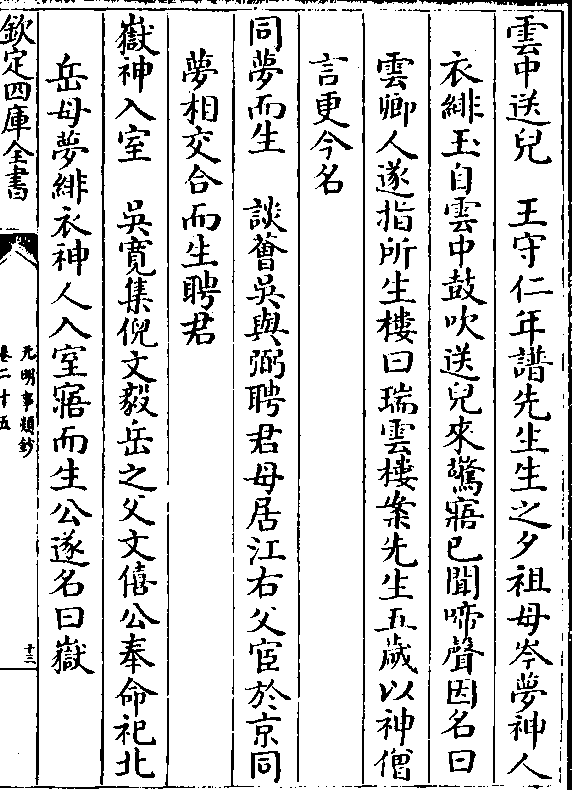 雲中送兒　王守仁年譜先生生之夕祖母岑夢神人
衣緋玉自雲中鼓吹送兒來驚寤已聞啼聲因名曰
雲卿人遂指所生樓曰瑞雲樓案先生五歲以神僧
言更今名
同夢而生　談薈吳與弼聘君母居江右父宦於京同
夢相交合而生聘君
嶽神入室　吳寬集倪文毅岳之父文僖公奉命祀北
岳母夢緋衣神人入室寤而生公遂名曰嶽
欽定四庫全書
元明事類鈔
卷二十五
十三